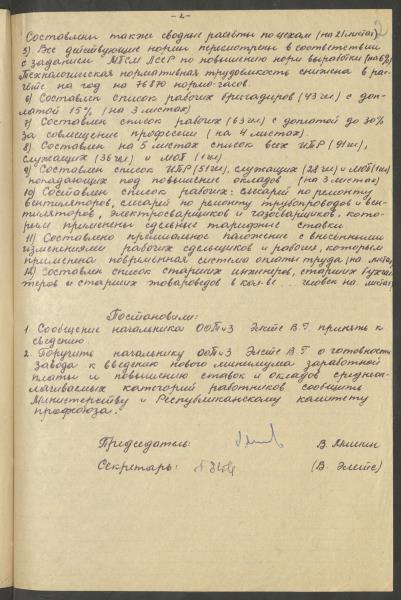 - 2 -
2
Составлены также сводные расчеты по цехам (на 21 листах)
5) Все действующие нормы пересмотрены в соответствии
с заданием МПСМ ЛССР по повышению норм выработки (на 6%)
Технологическая нормативная трудоемкость снижена в рас-
чете на год на 76870 нормо-часов.
6) Составлен список рабочих бригадиров (43 чел) с доп-
латой 15% (на 3 листах)
7) Составлен список рабочих (63 чел) с доплатой до 30%
за совмещение профессий (на 4 листах)
8) Составлен на 5 листах список всех ИТР (91 чел),
служащих (36 чел) и МОП (1 чел)
9) Составлен список ИТР (51 чел), служащих (28 чел) и МОП (1 чел)
попадающих под повышение окладов (на 3 листах)
10) Составлен список рабочих: слесарей по ремонту
вентиляторов, слесарей по ремонту трубопроводов и вен-
тиляторов, электросварщиков и газосварщиков, кото-
рым применены сдельные тарифные ставки
11) Составлено премиальное положение с внесенными
изменениями рабочих сдельщиков и рабочих, которым
применена повременная система оплаты труда (на листах)
12) Составлен список старших инженеров, старших бухгал-
теров и старших товароведов в кол-ве ... человек на листах
Постановили:
1. Сообщение начальника ООТиЗ Элste В.Г. принять к
сведению
2. Поручить начальнику ООТиЗ В.Г. о готовности
завода к введению нового минимума заработной
платы и повышению ставок и окладов среднеоп-
лачиваемых категорий работников сообщить
Министерству и Республиканскому комитету
профсоюза.
Председатель: В.
Секретарь: (В. )